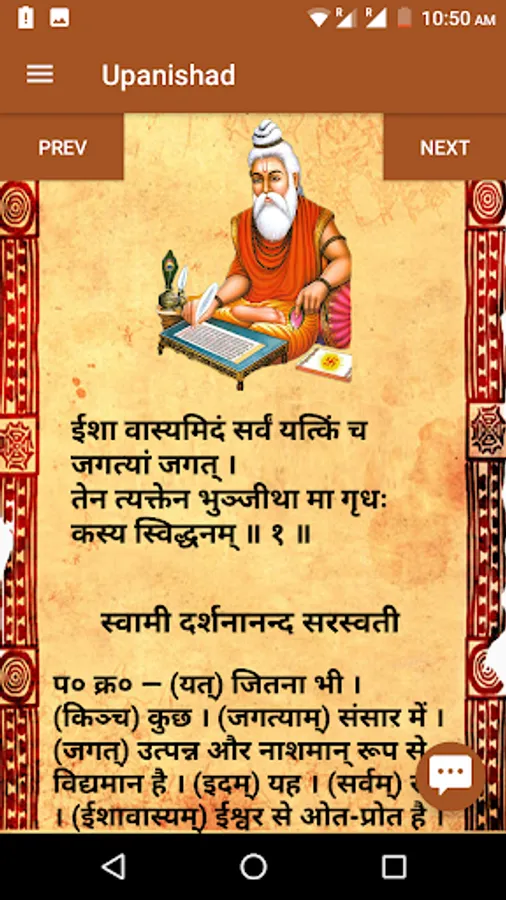 10:50 AM
Upanishad
PREV
NEXT
ईशा वास्यमिदं सर्वं यत्किं च
जगत्यां जगत् ।
तेन त्यक्तेन भुञ्जीथा मा गृधः
कस्य स्विद्धनम् ॥ १ ॥
स्वामी दर्शनानन्द सरस्वती
प० क्र० – (यत्) जितना भी ।
(किञ्च) कुछ । (जगत्याम्) संसार में ।
(जगत्) उत्पन्न और नाशमान् रूप से
विद्यमान है । (इदम्) यह । (सर्वम्)
। (ईशावास्यम्) ईश्वर से ओत-प्रोत है ।